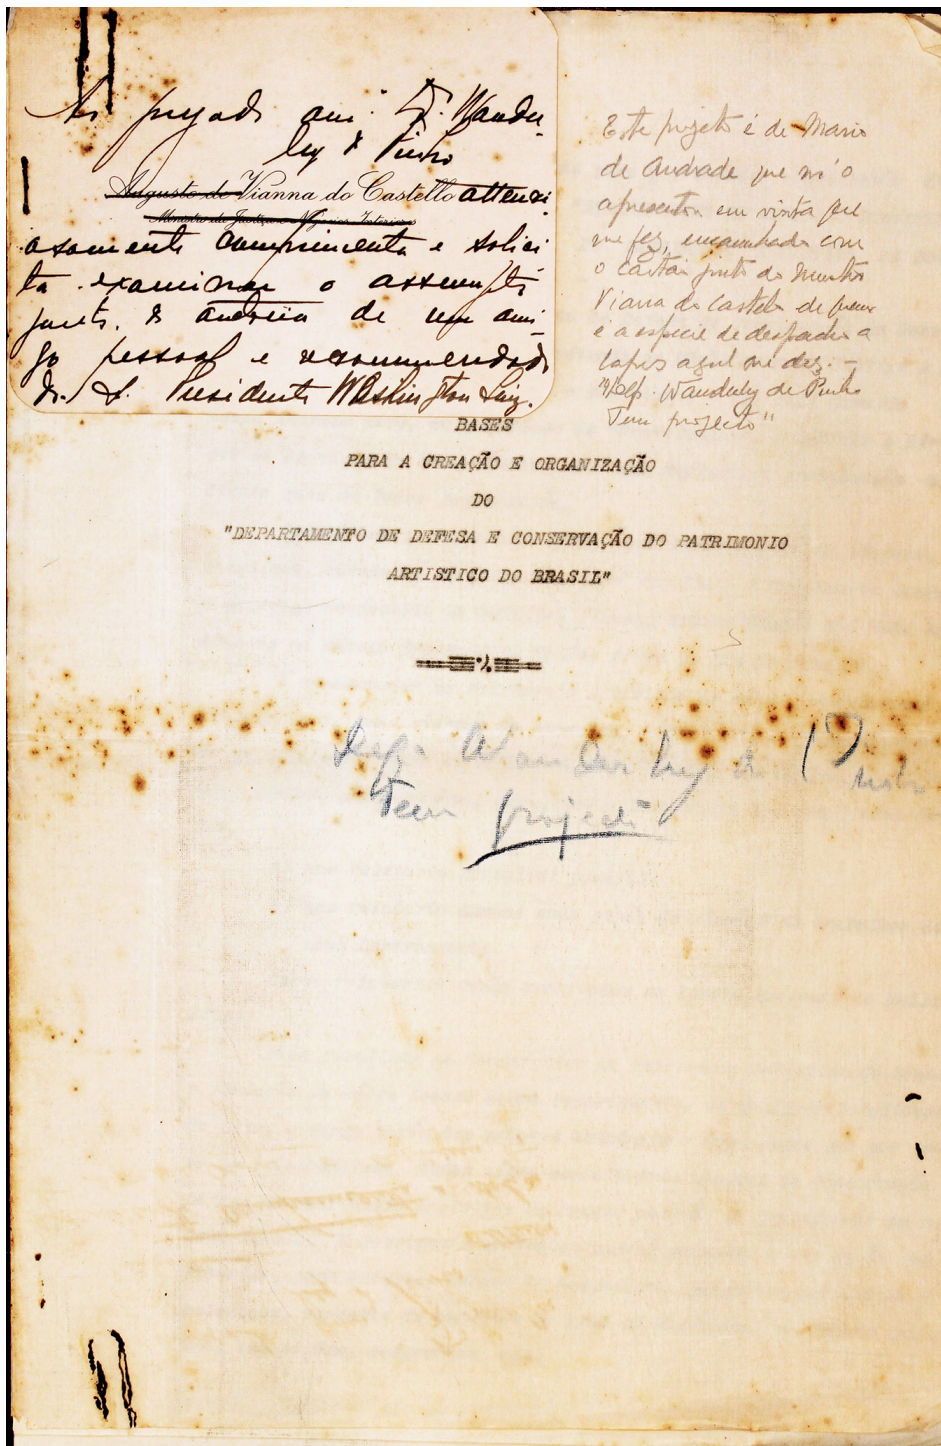 Ao prezado ami. Dr. Wander-
ley de Pinho
Augusto de Vianna do Castello attenci-
Ministro da Justiça e Negocios Interiores
osamente comprimenta e solici
ta examinar o assumpto
junto, de de um ami-
go pessoal e recommendado
do S. Presidente Washington Luiz.
Este projeto é de Mario
de Andrade que m'o
apresentou em visita que
me fez, encaminhado com
o cartão junto do Ministro
Viana do Castelo de quem
é a especie de despacho a
lapis azul que diz: –
Wanderley de Pinho
Tem projecto"
BASES
PARA A CREAÇÃO E ORGANIZAÇÃO
DO
"DEPARTAMENTO DE DEFESA E CONSERVAÇÃO DO PATRIMONIO
ARTISTICO DO BRASIL"
Wanderley de Pinho
Tem projecto